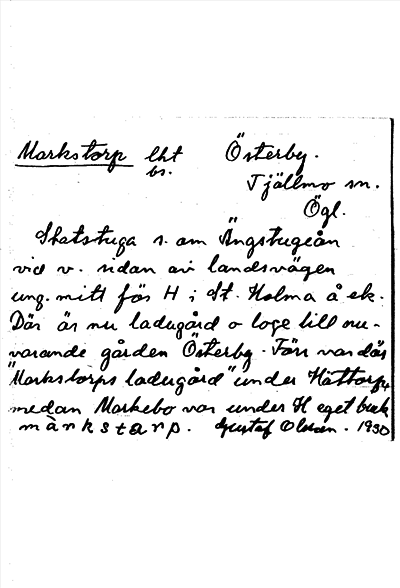 Markstorp lht Österby.
bs. Tjällmo sn.
Ögl.
Statstuga s. om Ängstugeån
vid v. sidan av landsvägen
ung. mitt för H i St. Holma å ek.
Där är nu ladugård o loge till nu-
varande gården Österby. Förr var där
"Markstorps ladugård" under Hättorp,
medan Markebo var under H eget bruk
màrkstarp. Gustaf Olsson. 1930